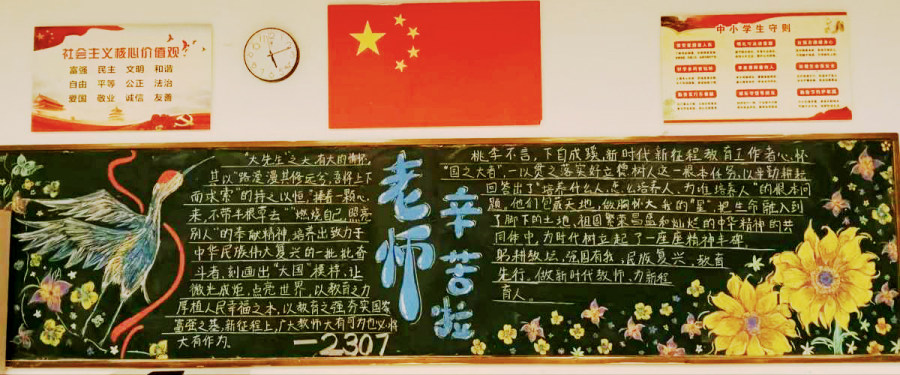 社会主义核心价值观
富强 民主 文明 和谐
自由 平等 公正 法治
爱国 敬业 诚信 友善
中小学生守则
"大先生"之大有大的情怀,
其以"路漫漫其修远兮,吾将上下
而求索"的持之以恒,"捧着一颗心
来,不带半根草去""燃烧自己,照亮
别人"的奉献精神,培养出致力于
中华民族伟大复兴的一批批奋
斗者,刻画出"大国"模样,让
微光成炬,点亮世界,以教育之力
厚植人民幸福之本,以教育之强夯实国家
富强之基,新征程上,广大教师大有可为也必将
大有作为。
老师
辛苦啦
—2307
桃李不言,下自成蹊,新时代新征程教育工作者心怀
"国之大者",一以贯之落实好立德树人这一根本任务,以辛勤耕耘
回答出了"培养什么人,怎么培养人,为谁培养人"的根本问
题,他们包藏天地,做胸怀大我的"民",把生命融入到
了脚下的土地,祖国繁荣昌盛和灿烂的中华精神的共
同体中,为时代树立起了一座座精神丰碑。
躬耕教坛,强国有我,民族复兴,教育
先行,做新时代教师,为新程
育人。